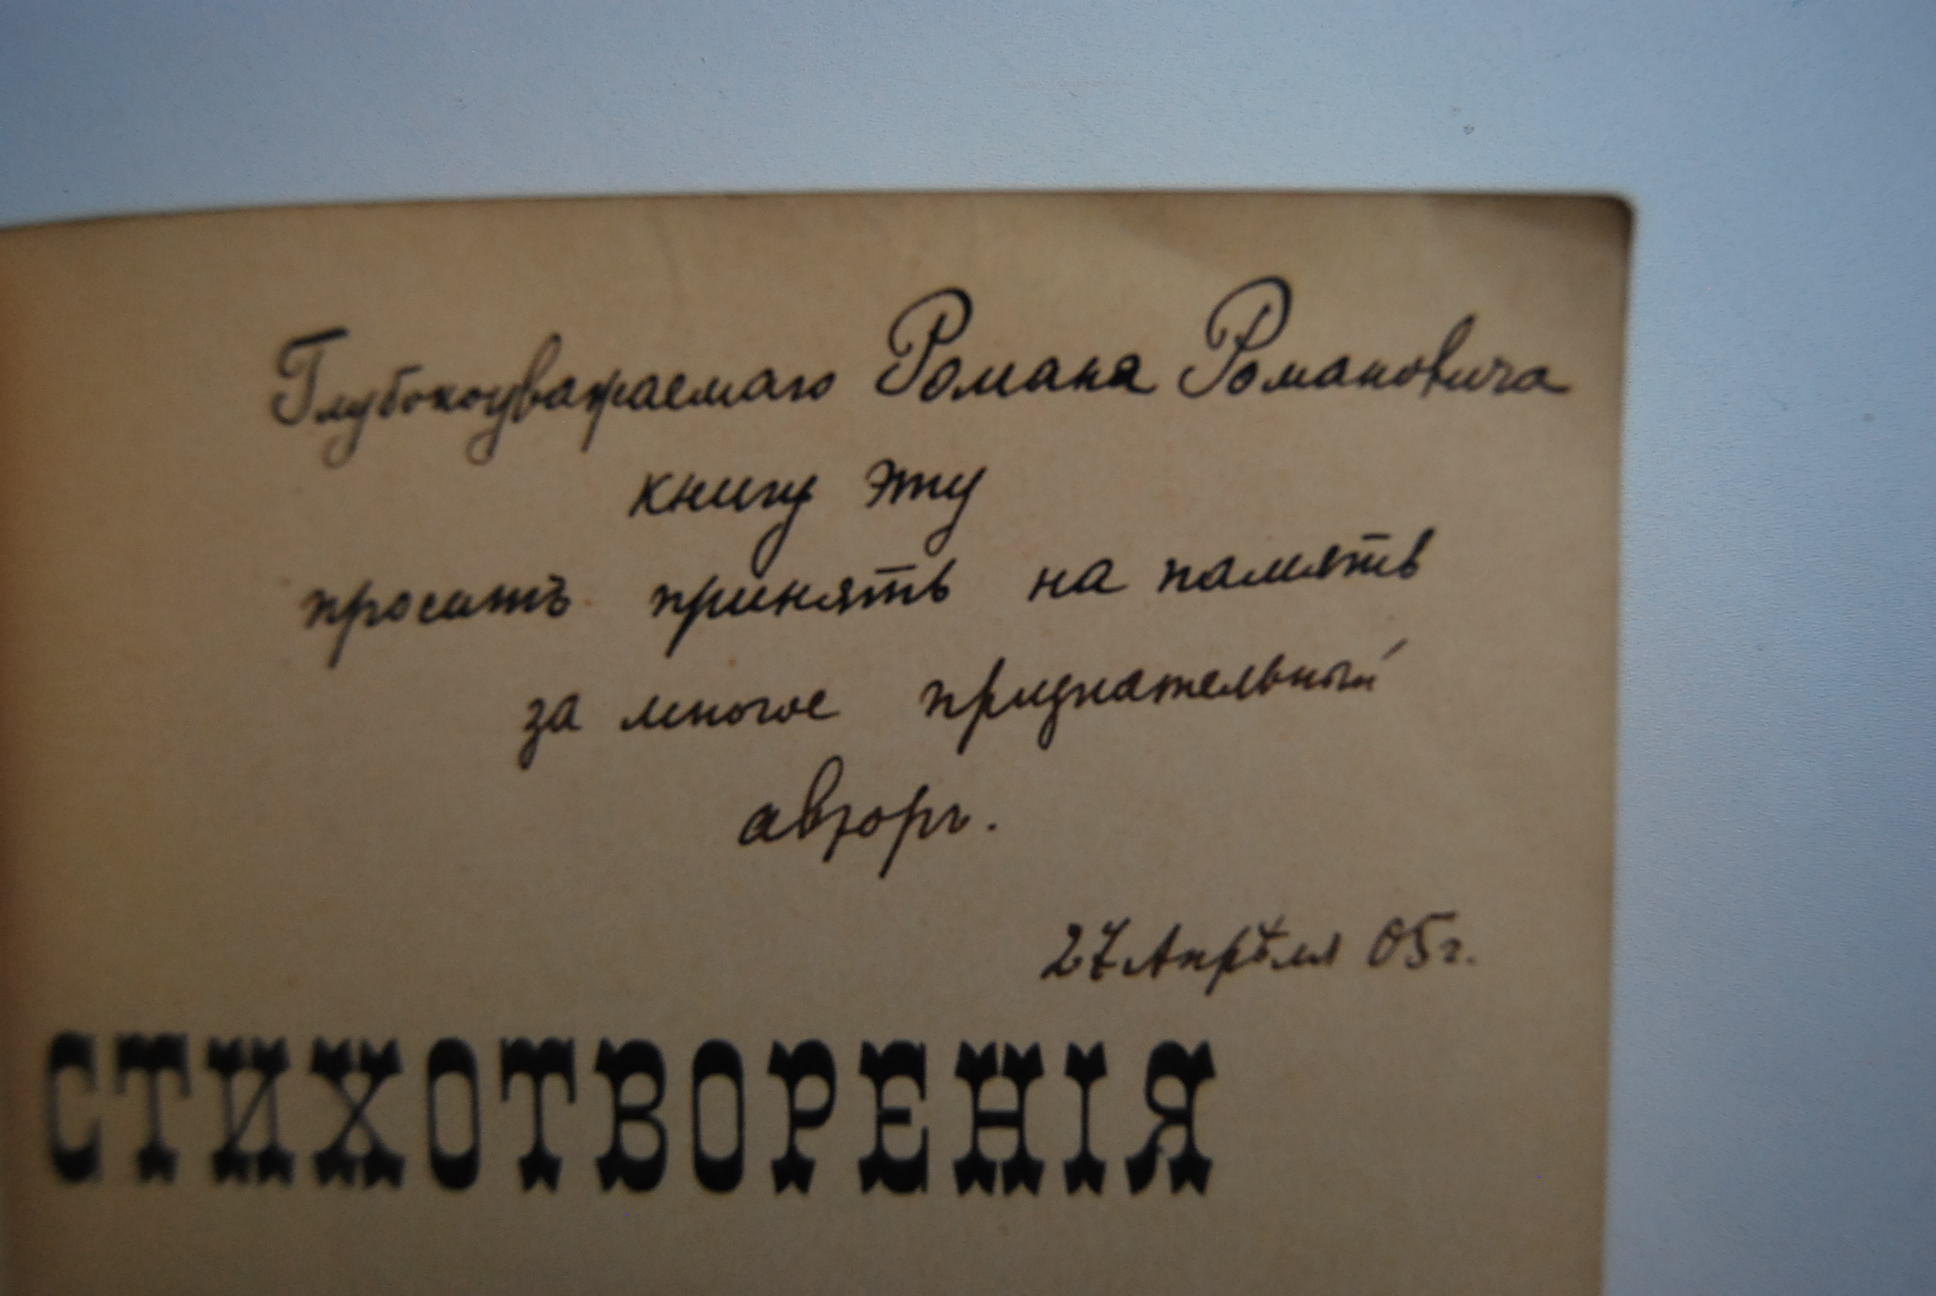 Глубокоуважаемаго Романа Романовича
книгу эту
проситъ принять на память
за многое признательный
авторъ.
27 Апрѣля 05 г.
СТИХОТВОРЕНІЯ